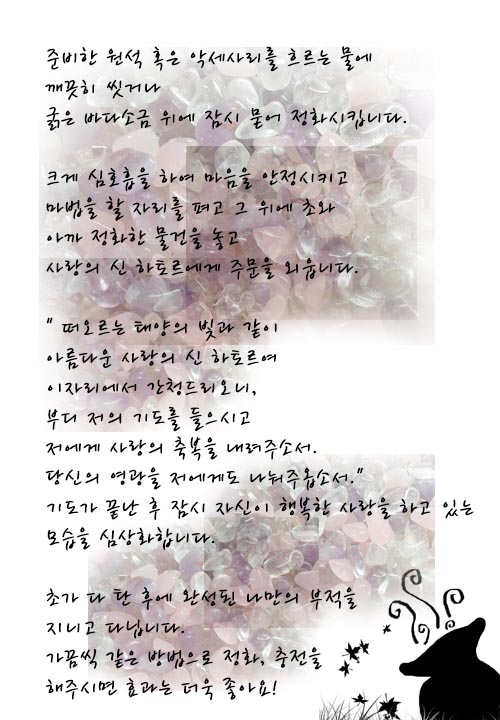 준비한 원석 혹은 악세사리를 흐르는 물에
깨끗히 씻거나
굵은 바다소금 위에 잠시 묻어 정화시킵니다.
크게 심호흡을 하여 마음을 안정시키고
마법을 할 자리를 펴고 그 위에 초와
아까 정화한 물건을 놓고
사랑의 신 하토르에게 주문을 외웁니다.
" 떠오르는 태양의 빛과 같이
아름다운 사랑의 신 하토르여
이자리에서 간청드리오니,
부디 저의 기도를 들으시고
저에게 사랑의 축복을 내려주소서.
당신의 영광을 저에게도 나눠주옵소서."
기도가 끝난 후 잠시 자신이 행복한 사랑을 하고 있는
모습을 심상화합니다.
초가 다 탄 후에 완성된 나만의 부적을
지니고 다닙니다.
가끔씩 같은 방법으로 정화, 충전을
해주시면 효과는 더욱 좋아요!